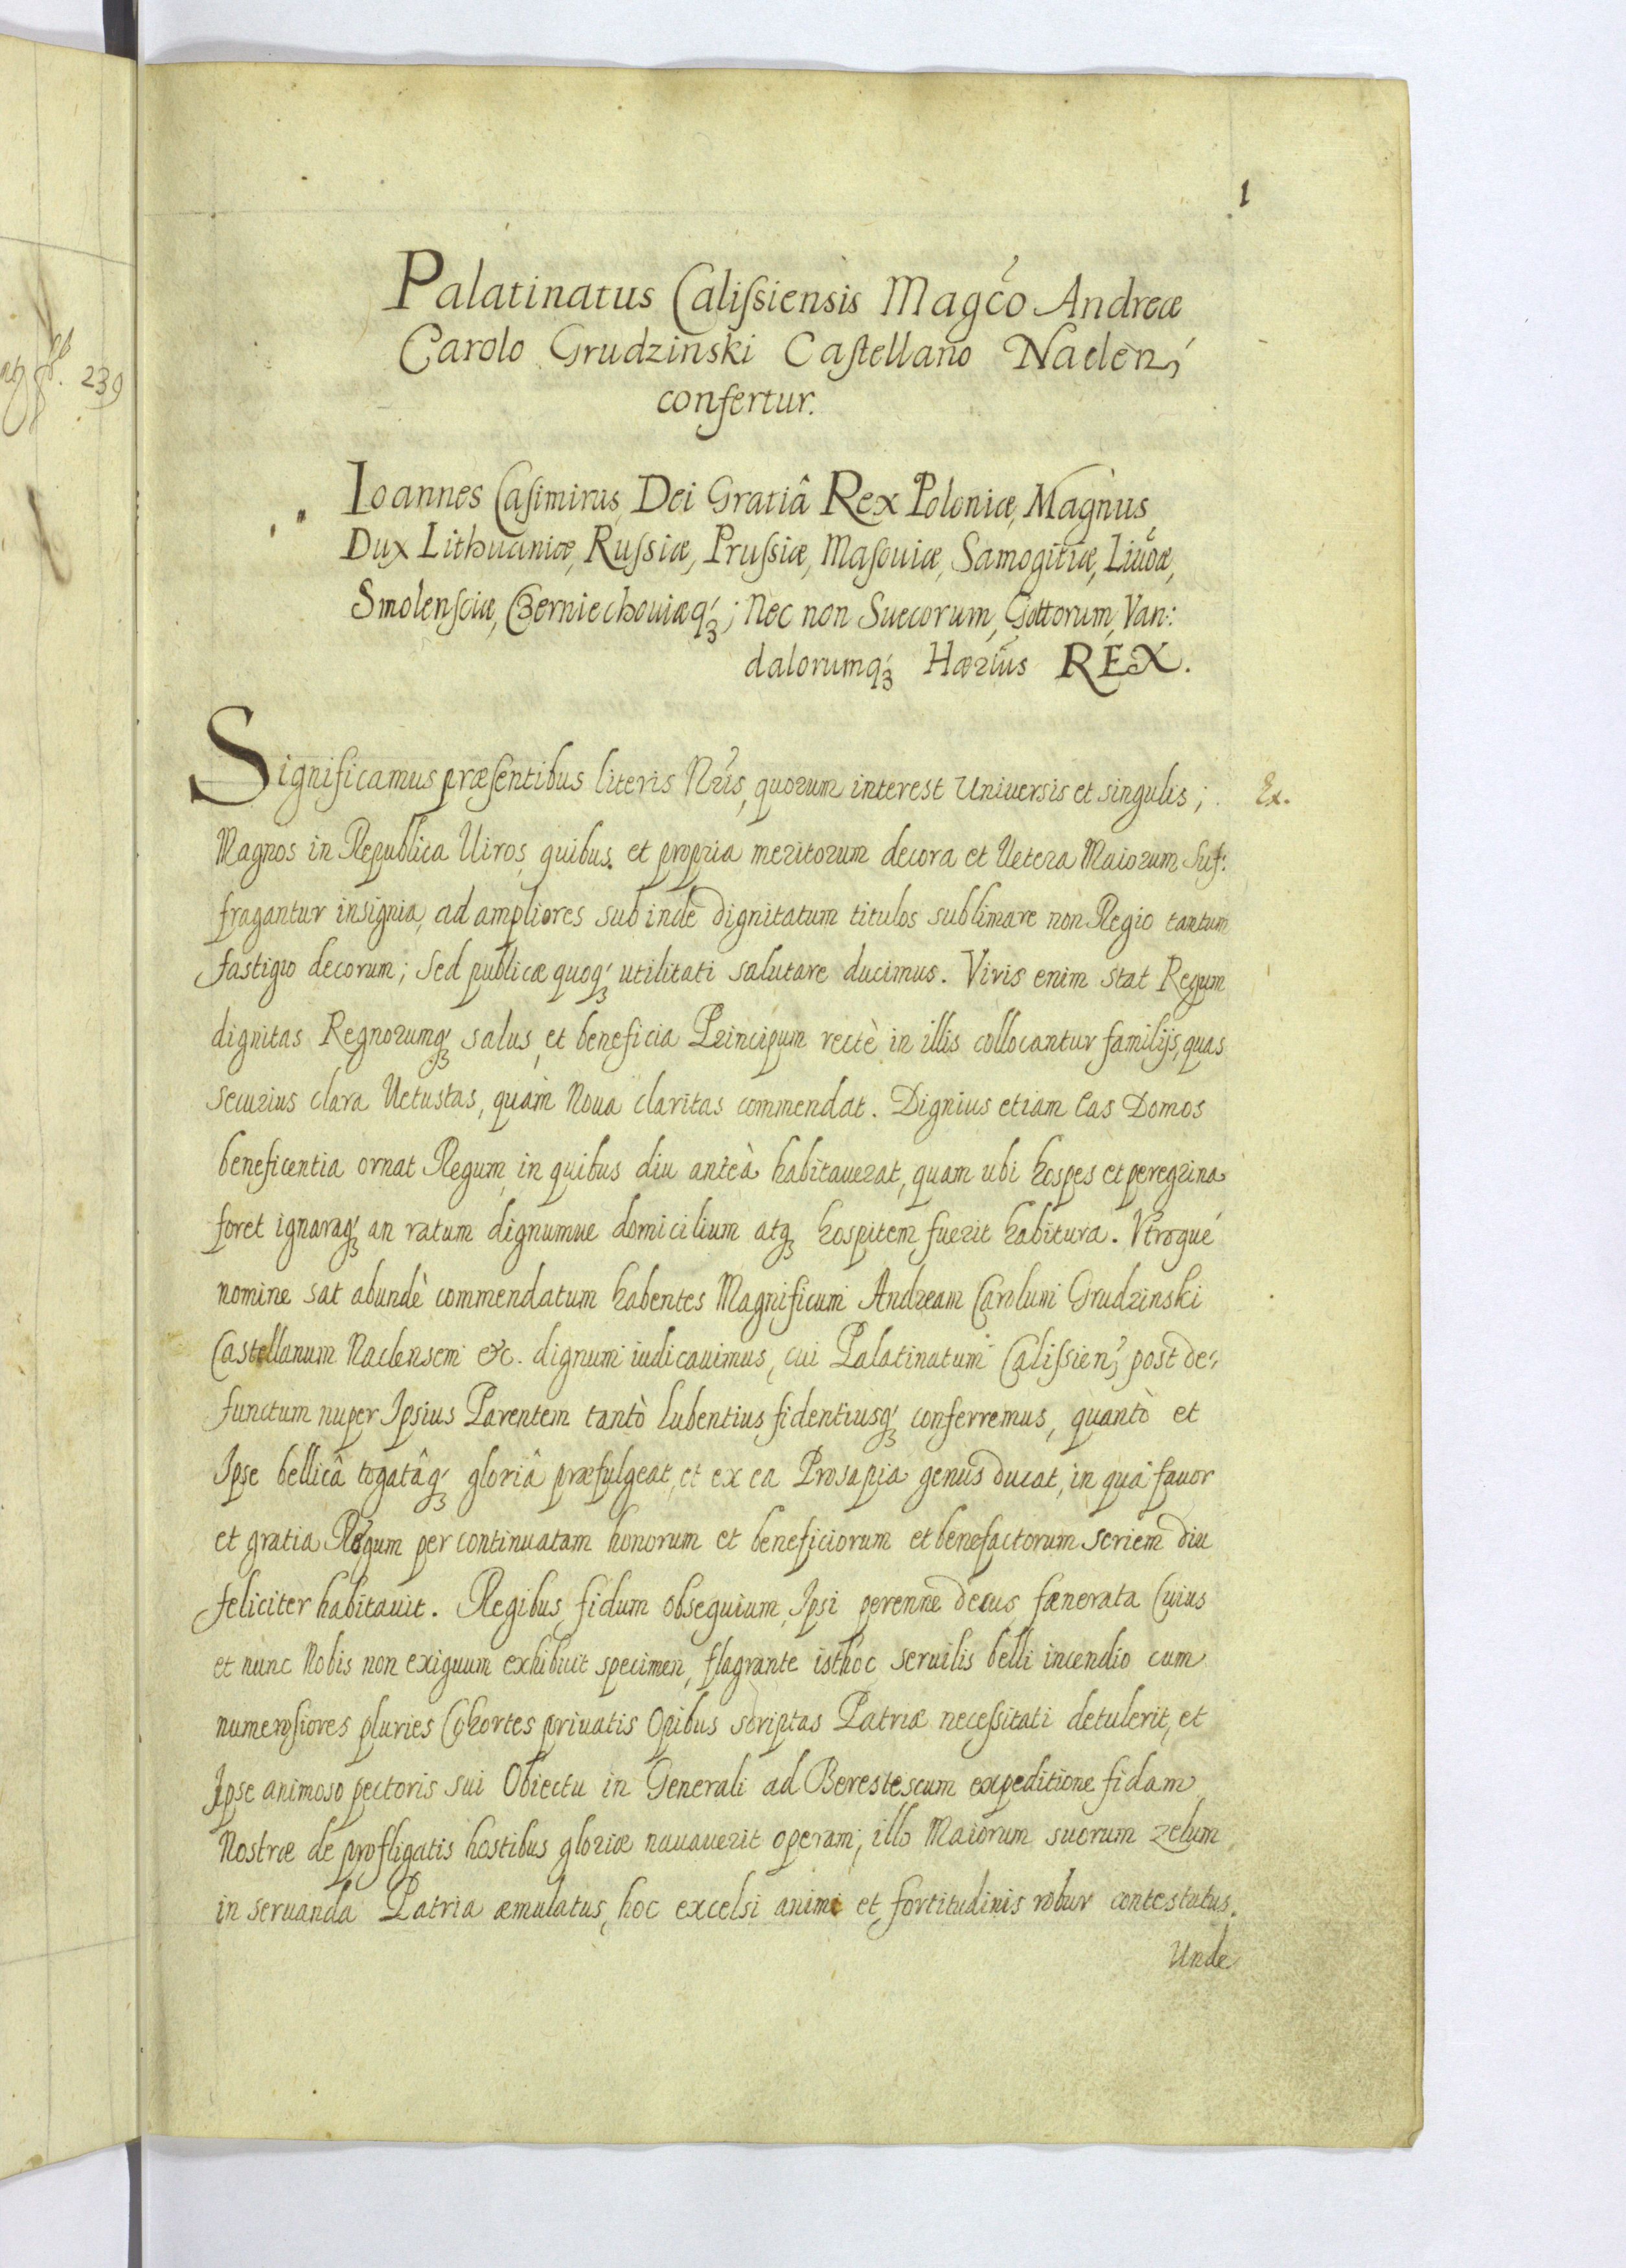 1
239
Palatinatus Calissiensis Magco Andreæ
Carolo Grudzinski Castellano Naclen;
confertur.
Ioannes Casimirus, Dei Gratiâ Rex Poloniæ, Magnus
Dux Lithuaniæ, Russiæ, Prussiæ, Masouiæ, Samogitiæ, Liuoæ,
Smolensciæ, Czerniechouiæq3; Nec non Suecorum, Gottorum, Van:
dalorumq3 Hærius REX.
Significamus præsentibus literis Nris, quorum interest Universis et singulis;
Ex.
Magnos in Republica Uiros, quibus et propria meritorum decora et Uetera Maiorum Suf:
fragantur insignia, ad ampliores sub indè dignitatum titulos sublimare non Regio tantum
fastigio decorum; sed publicæ quoq3 utilitati salutare ducimus. Viris enim stat Regum
dignitas Regnorumq3 salus, et beneficia Principum rectè in illis collocantur familijs, quas
securius clara Uetustas, quàm Noua claritas commendat. Dignius etiam Eas Domos
beneficentia ornat Regum, in quibus diu anteà habitauerat, quam ubi hospes et peregrina
foret ignaraq3 an ratum dignumue domicilium atq3 hospitem fuerit habitura. Vtroque
nomine sat abundè commendatum habentes Magnificum Andream Carolum Grudzinski
Castellanum Naclensem &c. dignum iudicauimus, cui Palatinatum Calissien; post de:
functum nuper Ipsius Parentem tantò lubentius fidentiusq3 conferremus, quantò et
Ipse bellicâ togatâq3 gloriâ præfulgeat, et ex ea Prosapia genus ducat, in qua fauor
et gratia Regum per continuatam honorum et beneficiorum et benefactorum seriem diu
feliciter habitauit. Regibus fidum obsequium, Ipsi perenne decus fænerata Cuius
et nunc Nobis non exiguum exhibuit specimen, flagrante isthoc seruilis belli incendio cum
numerosiores pluries Cohortes priuatis Opibus scriptas Patriæ necessitati detulerit, et
Ipse animoso pectoris sui Obiectu in Generali ad Berestescum expeditione fidam
Nostræ de profligatis hostibus gloriæ nauauerit operam; illo Maiorum suorum zelum
in seruanda Patria æmulatus, hoc excelsi animi et fortitudinis robur contestatus.
Unde